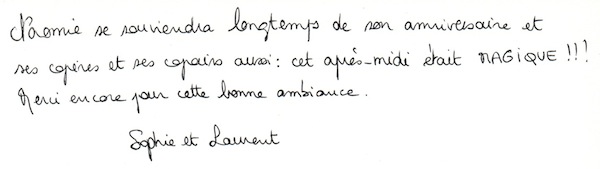 Naomie se souviendra longtemps de son anniversaire et
ses copines et ses copains aussi : cet après-midi était MAGIQUE !!!
Merci encore pour cette bonne ambiance.
Sophie et Laurent